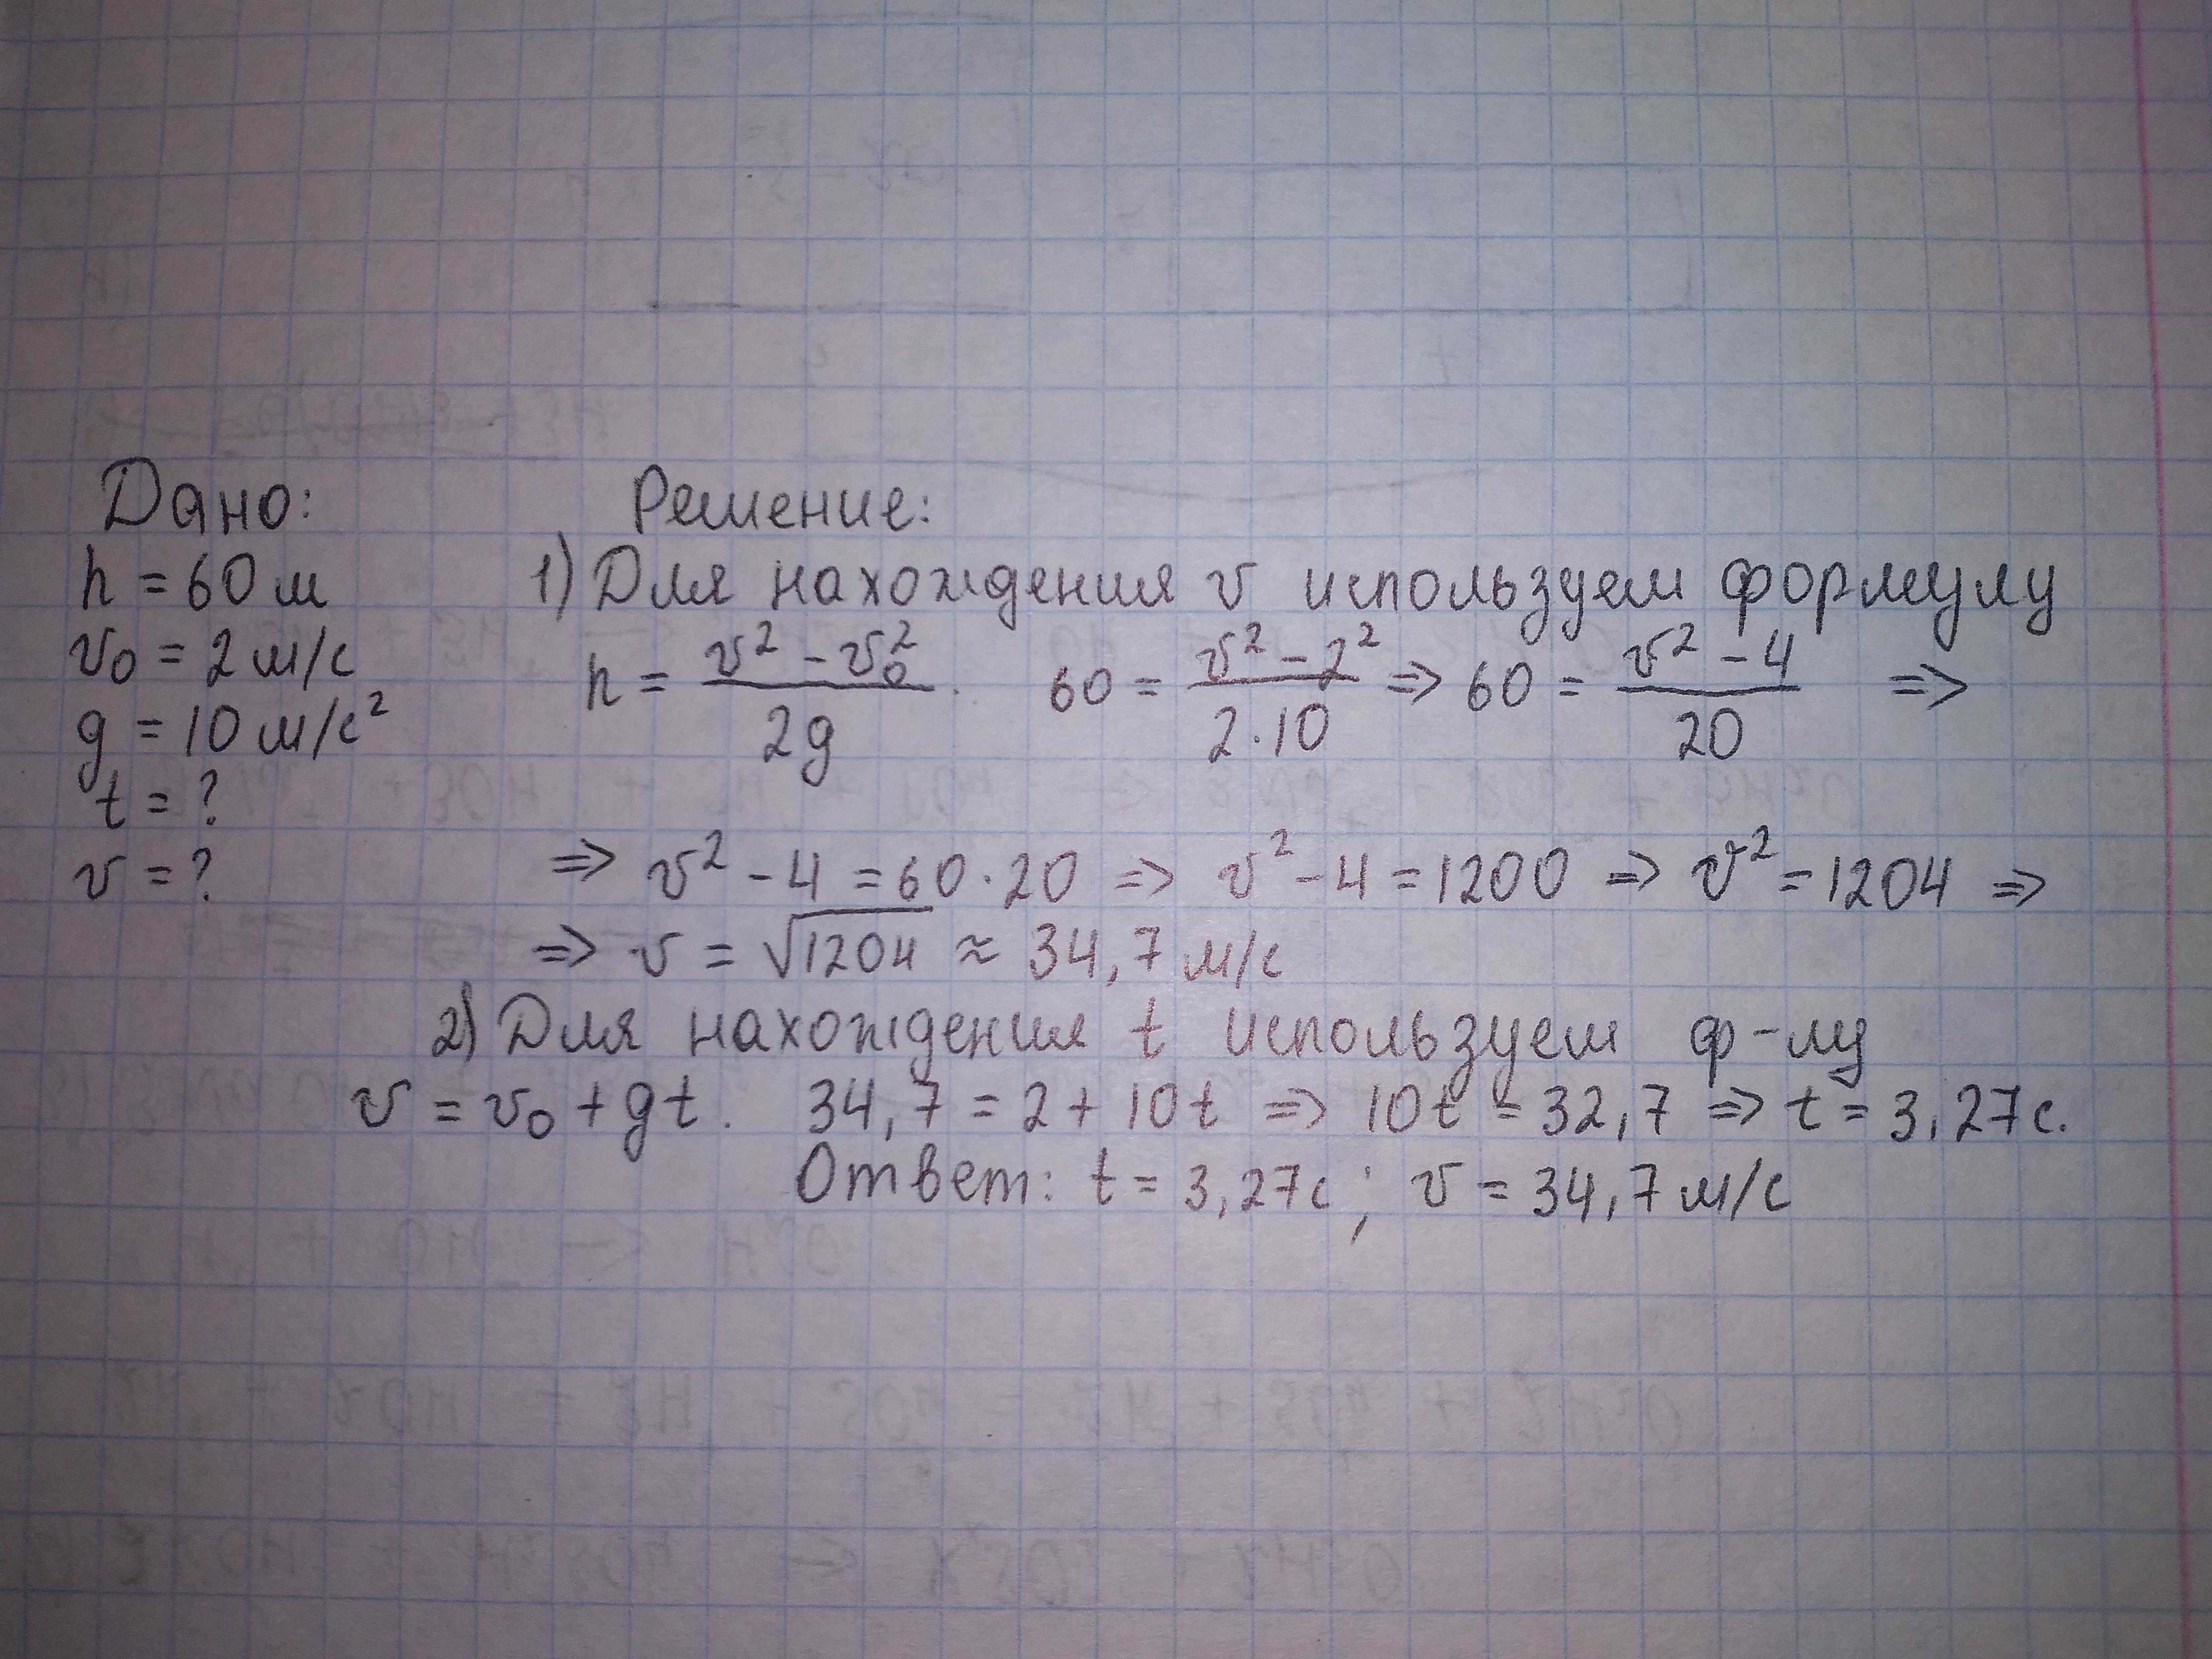 Дано:
h = 60 м
v₀ = 2 м/с
g = 10 м/с²
t = ?
v = ?
Решение:
1) Для нахождения v используем формулу
h = (v² - v₀²)/2g . 60 = (v² - 2²)/(2·10) => 60 = (v² - 4)/20 =>
=> v² - 4 = 60·20 => v² - 4 = 1200 => v² = 1204 =>
=> v = √1204 ≈ 34,7 м/с
2) Для нахождения t используем ф-лу
v = v₀ + gt. 34,7 = 2 + 10t => 10t = 32,7 => t = 3,27с.
Ответ: t = 3,27с ; v = 34,7 м/с